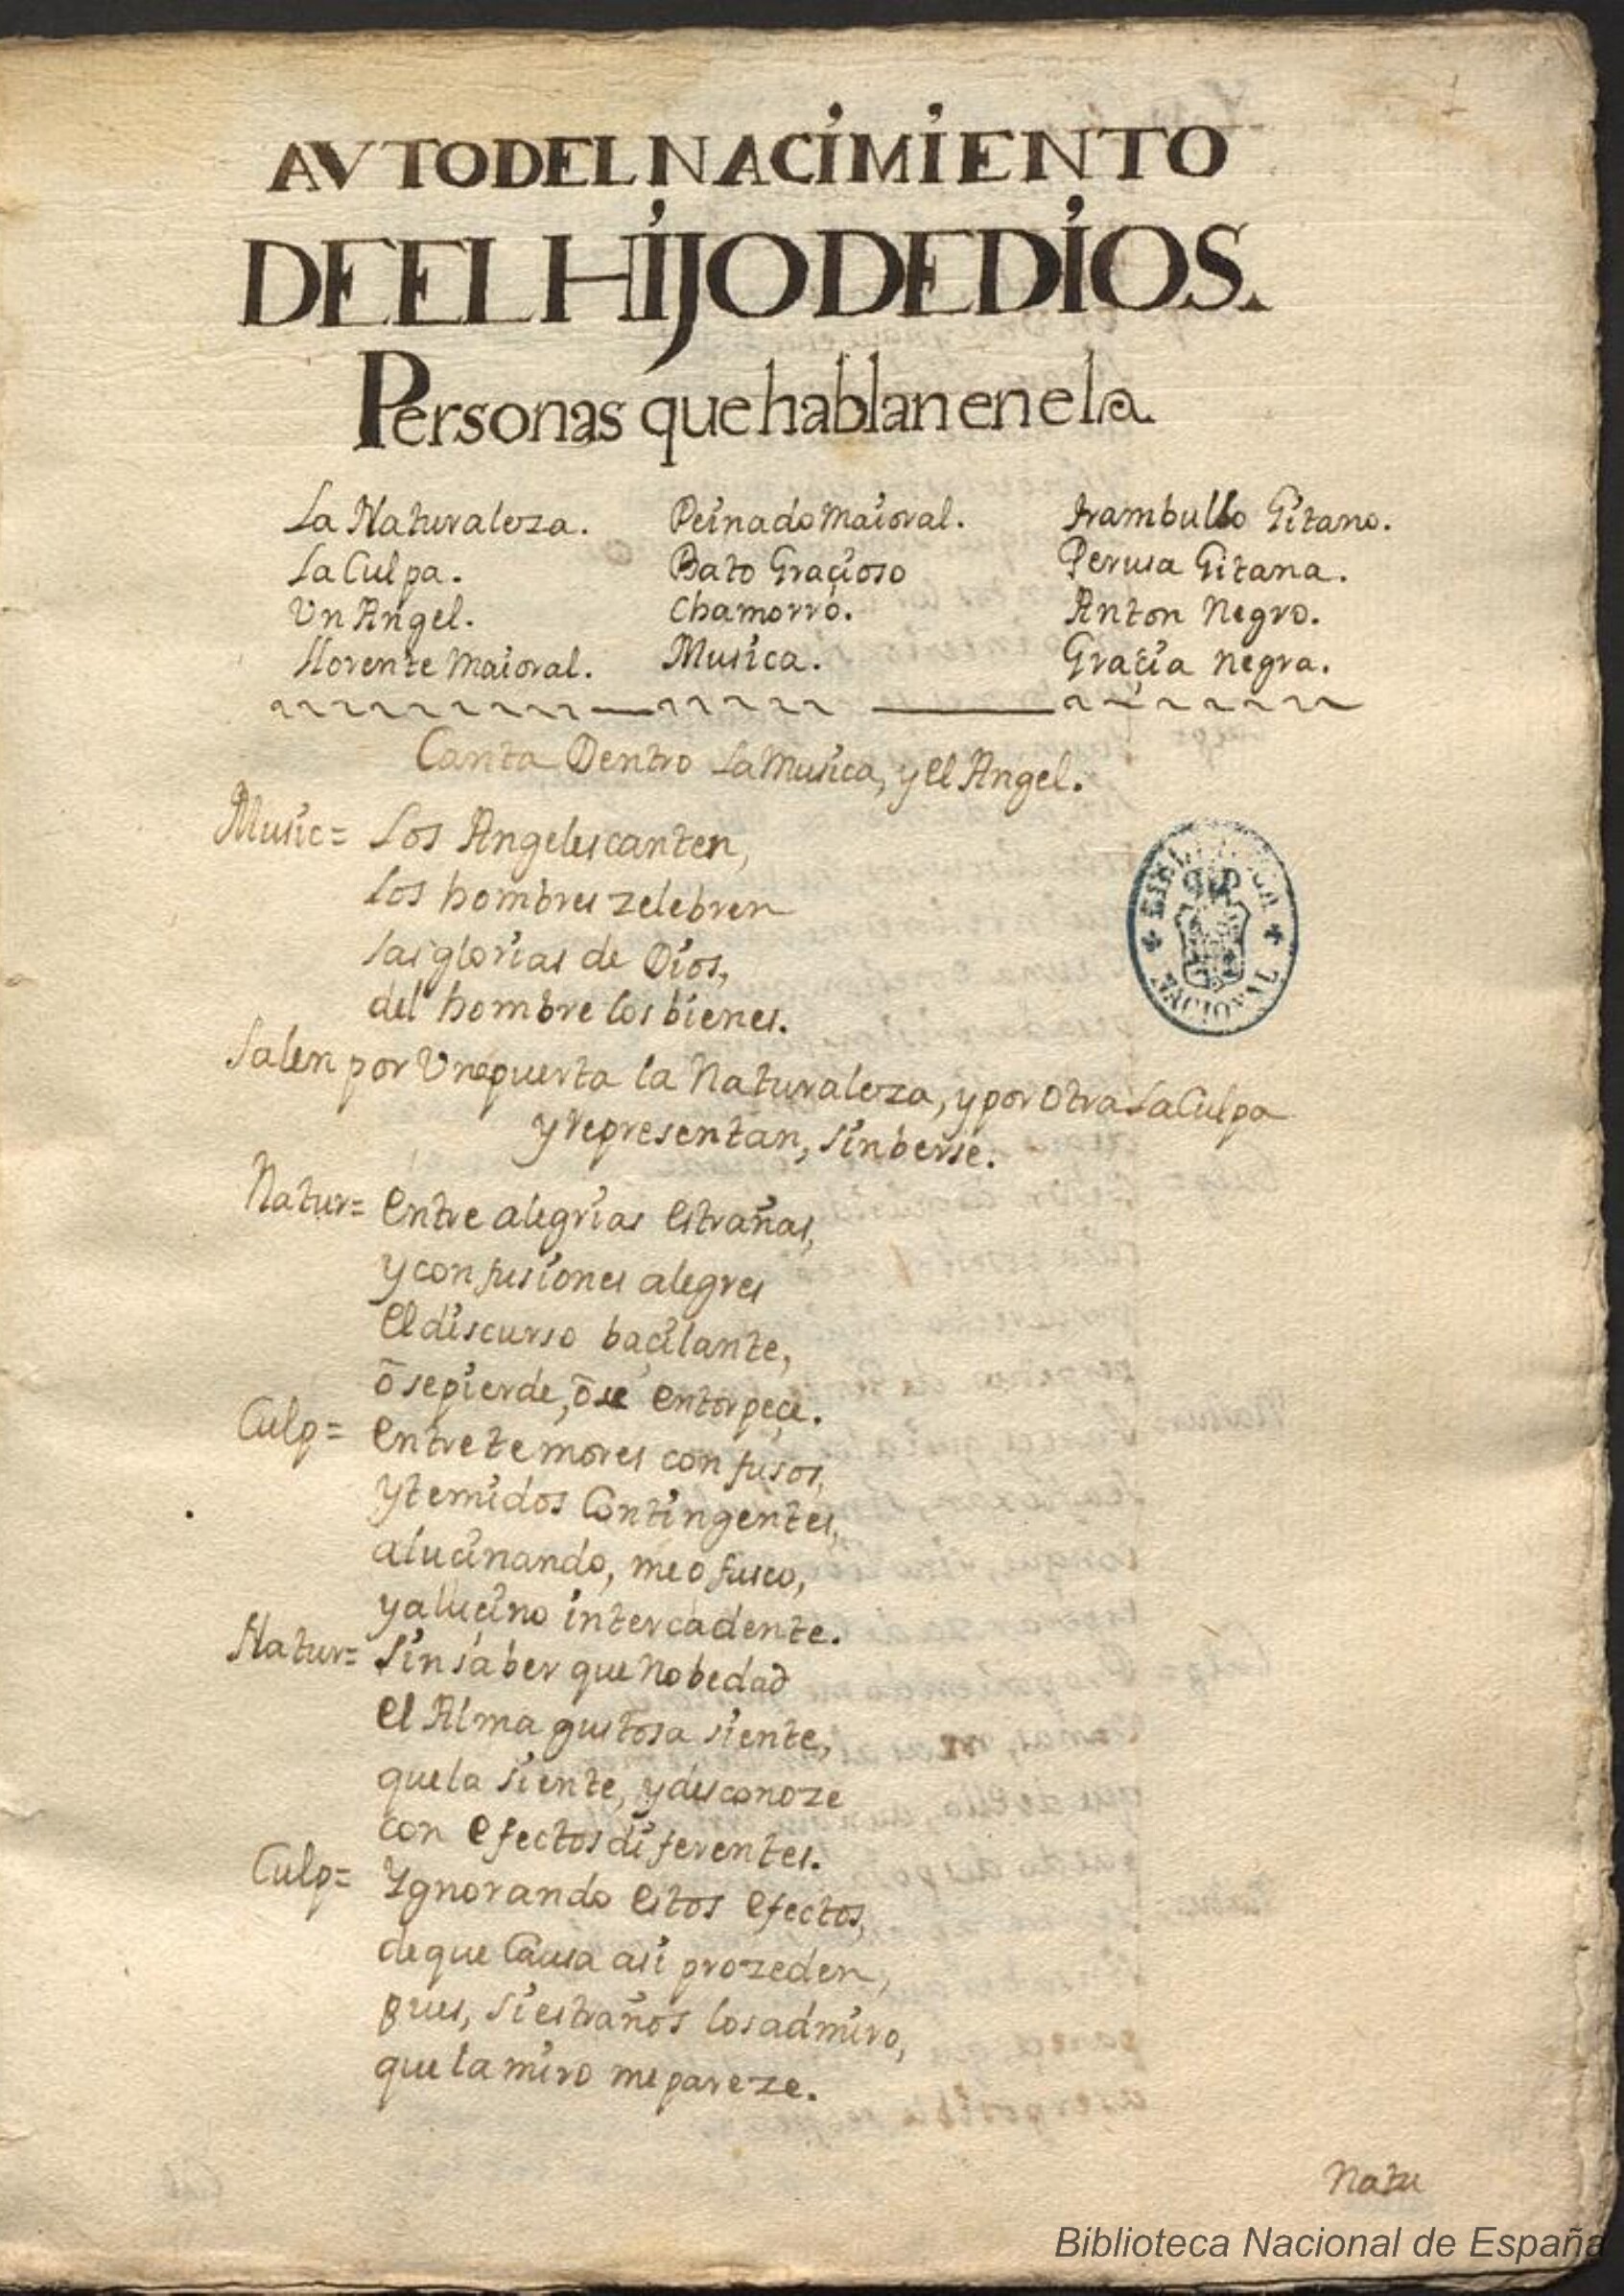 AVTO DEL NACIMIENTO
DE EL HIJO DE DIOS.
Personas que hablan en ela
La Naturaleza. Peinado Maioral. trambullo Gitano.
La Culpa. Bato Graçioso Perusa Gitana.
Vn Angel. Chamorro. Anton Negro.
Llorente Maioral. Musica. Graçia negra.
Canta Dentro La Musica, y el Angel.
Music= Los Angeles canten,
los hombres zelebren
las glorias de Dios,
del hombre los bienes.
Salen por Vna puerta la Naturaleza, y por otra La Culpa
y representan, sin berse.
Natur= Entre alegrias estrañas,
y confusiones alegres
El discurso baçilante,
ō se pierde, ō se entorpeçe.
Culp= Entre temores confusos,
y temidos Contingentes,
aluçinando, me ofusco,
y aluçino intercadente.
Natur= Sin saber que Nobedad
el Alma gustosa siente,
que la siente, y desconoze
con efectos diferentes.
Culp= Ygnorando estos efectos,
de que Causa asi prozeden,
pues, si estraños los admiro,
que la miro me pareze.
BIBLIOTECA NACIONAL
Natu
Biblioteca Nacional de España